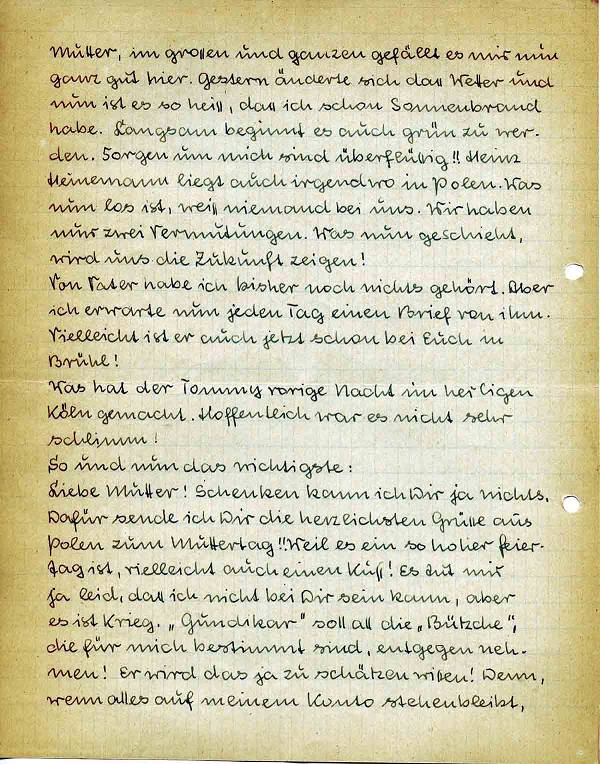 Mutter, im großen und ganzen gefällt es mir nun
ganz gut hier. Gestern änderte sich das Wetter und
nun ist es so heiß, daß ich schon Sonnenbrand
habe. Langsam beginnt es auch grün zu wer-
den. Sorgen um mich sind überflüßig!! Heinz
Heinemann liegt auch irgendwo in Polen. Was
nun los ist, weiß niemand bei uns. Wir haben
nur zwei Vermutungen. Was nun geschieht,
wird uns die Zukunft zeigen!
Von Vater habe ich bisher noch nichts gehört. Aber
ich erwarte nun jeden Tag einen Brief von ihm.
Vielleicht ist er auch jetzt schon bei Euch in
Brühl!
Was hat der Tommy vorige Nacht im heiligen
Köln gemacht. Hoffentleich war es nicht sehr
schlimm!
So und nun das wichtigste:
Liebe Mutter! Schenken kann ich Dir ja nichts.
Dafür sende ich Dir die herzlichsten Grüße aus
Polen zum Muttertag!! Weil es ein so hoher Feier-
tag ist, vielleicht auch einen Kuß! Es tut mir
ja leid, daß ich nicht bei Dir sein kann, aber
es ist Krieg. „Gundikar" soll all die „Bützche",
die für mich bestimmt sind, entgegen neh-
men! Er wird das ja zu schätzen wißen! Denn,
wenn alles auf meinem Konto stehenbleibt,